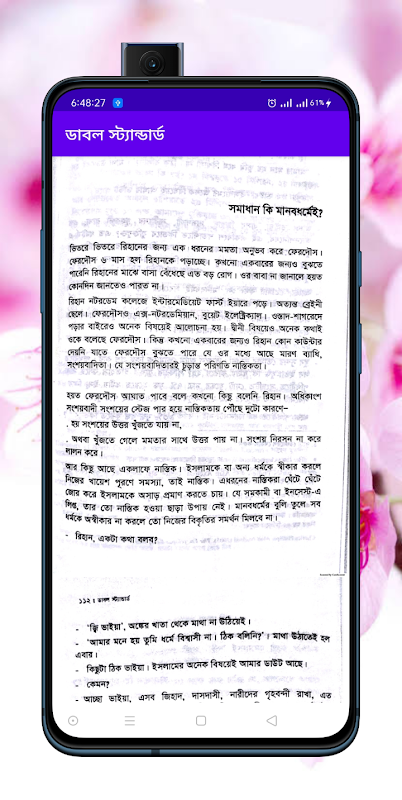 6:48:27
61%
ডাবল স্ট্যান্ডার্ড
সমাধান কি মানবধর্মেই?
ভিতরে ভিতরে রিহানের জন্য এক ধরনের মমতা অনুভব করে ফেরদৌস।
ফেরদৌস ৬ মাস হল রিহানকে পড়াচ্ছে। কখনো একবারের জন্যও বুঝতে
পারেনি রিহানের মাঝে বাসা বেঁধেছে এত বড় রোগ। ওর বাবা না জানালে হয়ত
কোনদিন জানতেও পারত না।
রিহান নটরডেম কলেজে ইন্টারমেডিয়েট ফার্স্ট ইয়ারে পড়ে। অত্যন্ত ব্রেইনী
ছেলে। ফেরদৌসও এক্স-নটরডেমিয়ান, বুয়েট ইলেক্ট্রিক্যাল। ওস্তাদ-শাগরেদে
পড়ার বাইরেও অনেক বিষয়েই আলোচনা হয়। দ্বীনী বিষয়েও অনেক কথাই
ওকে বলেছে ফেরদৌস। কিন্তু কখনো একবারের জন্যও রিহান কোন কাউন্টার
দেয়নি যাতে ফেরদৌস বুঝতে পারে যে ওর মধ্যে আছে মারণ ব্যাধি,
সংশয়বাদিতা। যে সংশয়বাদিতারই চূড়ান্ত পরিণতি নাস্তিকতা।
হয়ত ফেরদৌস আঘাত পাবে বলে কখনো কিছু বলেনি রিহান। অধিকাংশ
সংশয়বাদী সংশয়ের স্টেজ পার হয়ে নাস্তিকতায় পৌঁছে দুটো কারণে–
. হয় সংশয়ের উত্তর খুঁজতে যায় না,
. অথবা খুঁজতে গেলে মমতার সাথে উত্তর পায় না। সংশয় নিরসন না করে
লালন করে।
আর কিছু আছে একলাফে নাস্তিক। ইসলামকে বা অন্য ধর্মকে স্বীকার করলে
নিজের খায়েশ পূরণে সমস্যা, তাই নাস্তিক। এধরনের নাস্তিকরা ঘেঁটে ঘেঁটে
জোর করে ইসলামকে অসাড় প্রমাণ করতে চায়। যে সমকামী বা ইনসেস্ট-এ
লিপ্ত, তার তো নাস্তিক হওয়া ছাড়া উপায় নেই। মানবধর্মের বুলি তুলে সব
ধর্মকে অস্বীকার না করলে তো নিজের বিকৃতির সমর্থন মিলবে না।
- রিহান, একটা কথা বলব?
১১২ । ডাবল স্ট্যান্ডার্ড
- 'জ্বি ভাইয়া', অঙ্কের খাতা থেকে মাথা না উঠিয়েই।
- 'আমার মনে হয় তুমি ধর্মে বিশ্বাসী না। ঠিক বলিনি?'। মাথা উঠাতেই হল
এবার।
- কিছুটা ঠিক ভাইয়া। ইসলামের অনেক বিষয়েই আমার ডাউট আছে।
- কেমন?
- আচ্ছা ভাইয়া, এসব জিহাদ, দাসদাসী, নারীদের গৃহবন্দী রাখা, এত